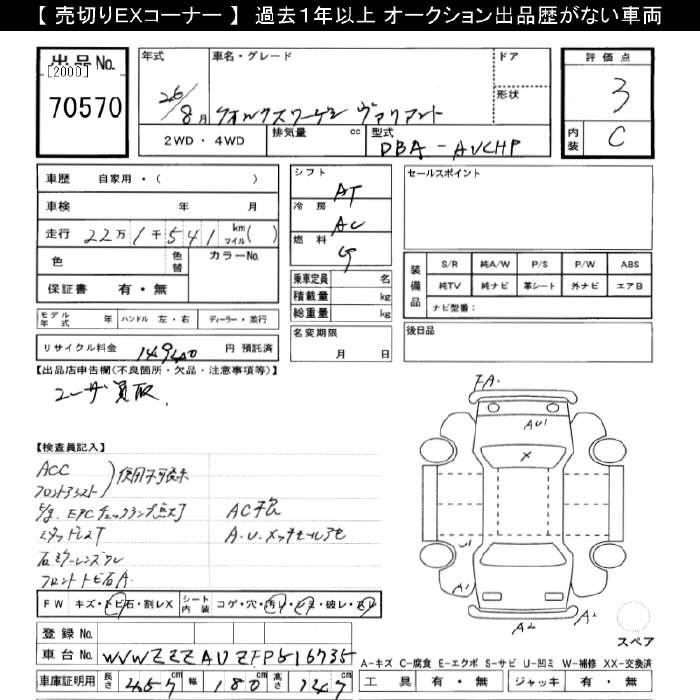 【 売切りEXコーナー 】 過去1年以上 オークション出品歴がない車両
出品No. 年式 車名・グレード ドア 評価点
[2000]
70570 26/8月 フォルクスワーゲン ヴァリアント 形状 3
2WD・4WD 排気量 cc 型式 DBA-AUCHP 内装 C
車歴 自家用・( ) シフト AT セールスポイント
車検 年 月 冷房 AC
走行 22万1千541 km マイル( ) 燃料 G
色 色替 カラーNo. 装備品 S/R 純A/W P/S P/W ABS
保証書 有・無 乗車定員 名 純TV 純ナビ 革シート 外ナビ エアB
積載量 kg ナビ型番:
モデル年式 年 ハンドル 左・右 ディーラー・並行 総重量 kg 後日品
リサイクル料金 円 預託済 名変期限 月 日
【出品店申告欄(不良箇所・欠品・注意事項等)】
ユーザ買取. F.A.
AU1
X
【検査員記入】
ACC
フロントアシスト 使用不可表示
EPCチェックランプ点灯 AC不良
A.U.メッキモールアセ
U1
フロントトビ石A. A1 A1
FW キズ・トビ石・割レX シート内装 コゲ・穴・汚レ・シミ・破レ・スレ
A2 A2
登録No.
車台No. WVWZZZAUZFP516735 スペア
車庫証明用 長さ 457cm 幅 180cm 高さ 147cm
A-キズ C-腐食 E-エクボ S-サビ U-凹ミ W-補修 XX-交換済
工具 有・無 ジャッキ 有・無